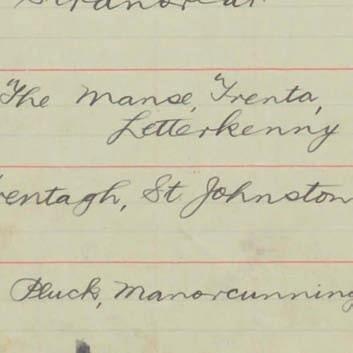 Stranorlar
The Manse, Trenta,
Letterkenny
rentagh, St Johnston
Pluck, Manorcunning